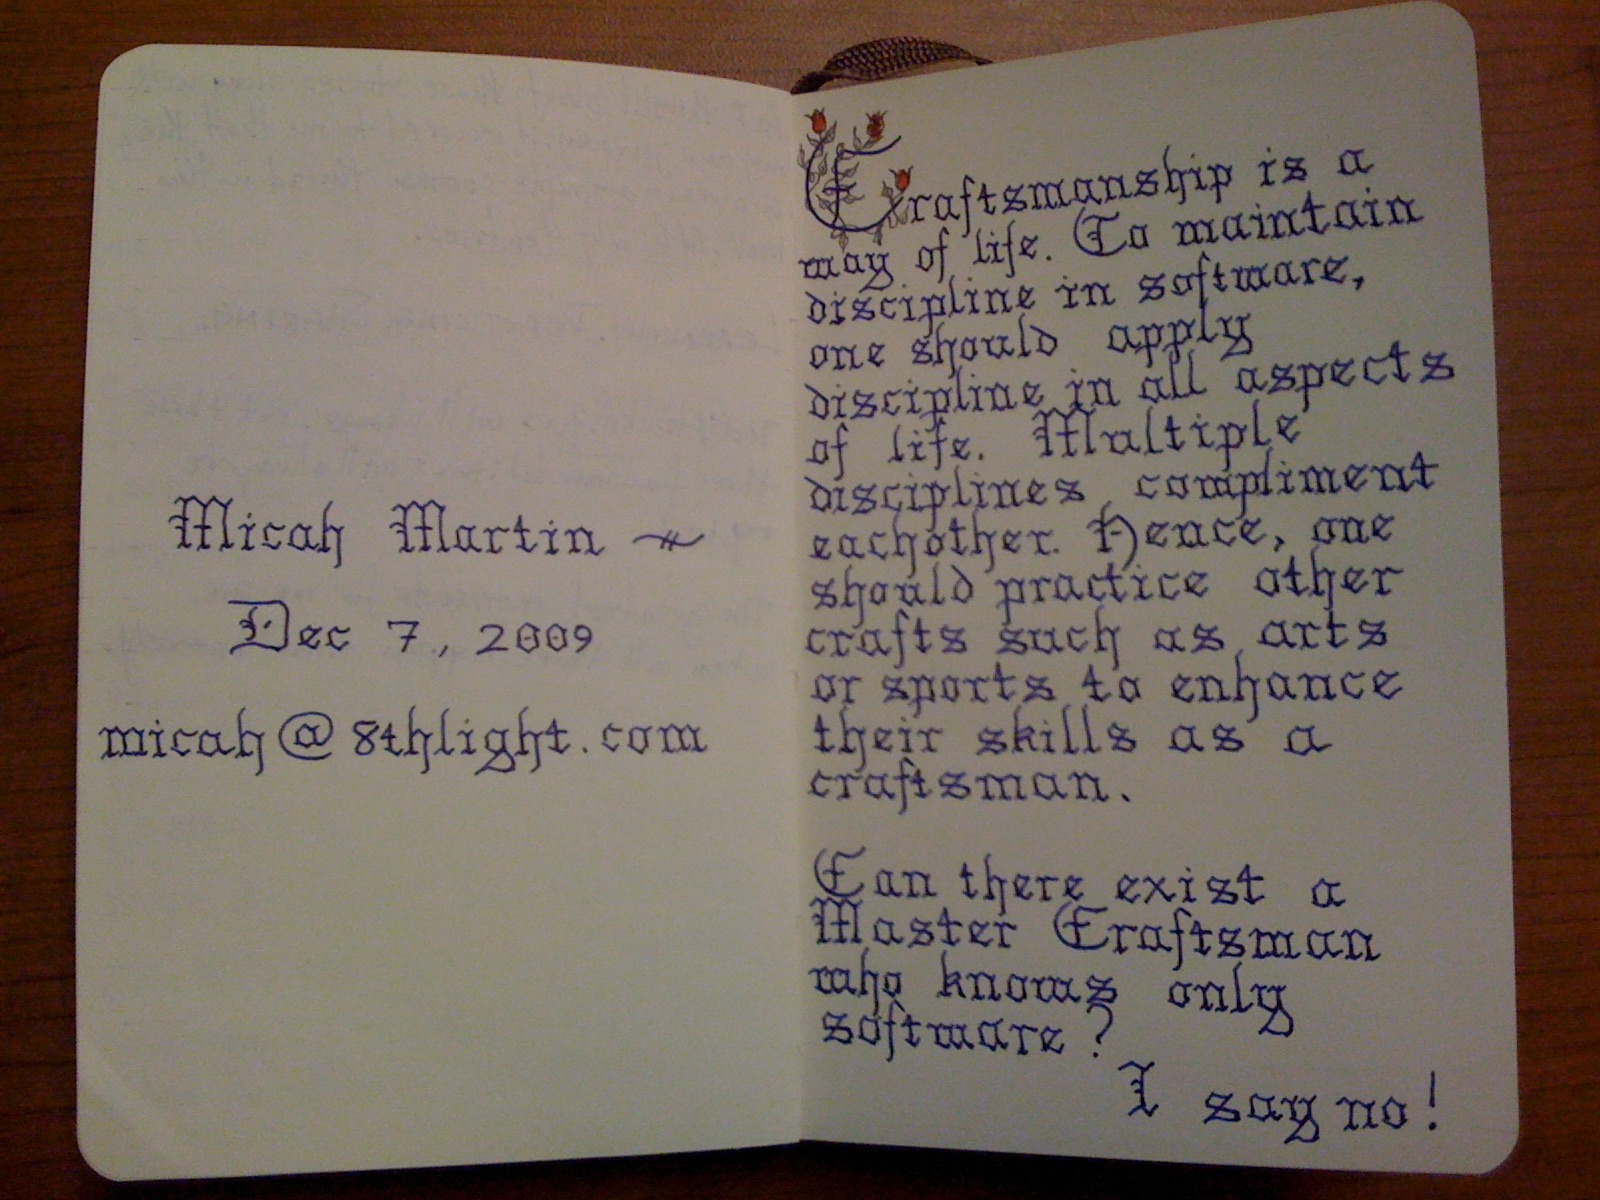 Micah Martin
Dec 7, 2009
micah@8thlight.com
Craftsmanship is a
way of life. To maintain
discipline in software,
one should apply
discipline in all aspects
of life. Multiple
disciplines compliment
eachother. Hence, one
should practice other
crafts such as arts
or sports to enhance
their skills as a
craftsman.
Can there exist a
Master Craftsman
who knows only
software?
I say no!